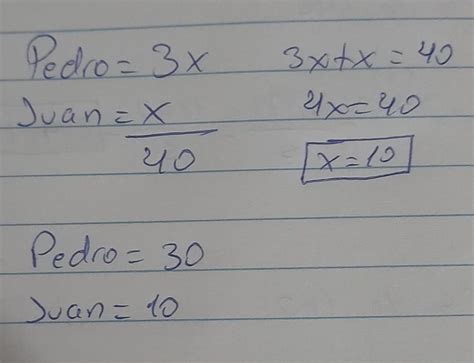 Pedro = 3x
Juan = x
40
3x+x = 40
4x=40
x=10
Pedro = 30
Juan = 10